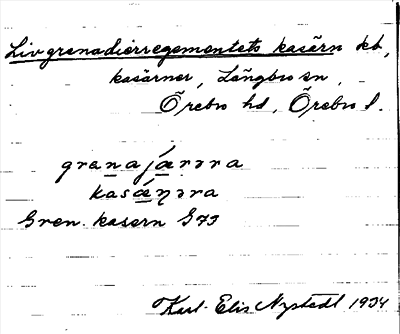 Livgrenadierregementets kasärn kb,
kasärner, Längbro sn,
Örebro hd, Örebro l.
granajǽrəra
kasǽŋəra
Gren. kasern G73
Karl-Elis Nystedt 1934